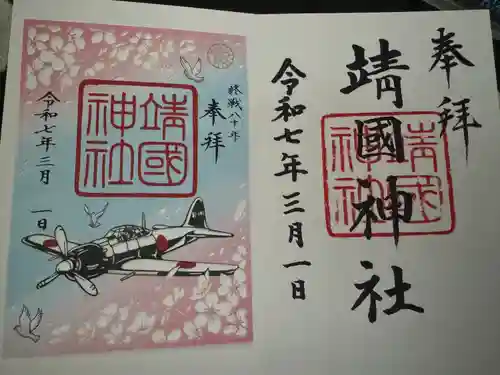 奉拝
靖國神社
令和七年三月一日
靖國
神社
終戦八十年
奉拝
靖國
神社
令和七年三月一日